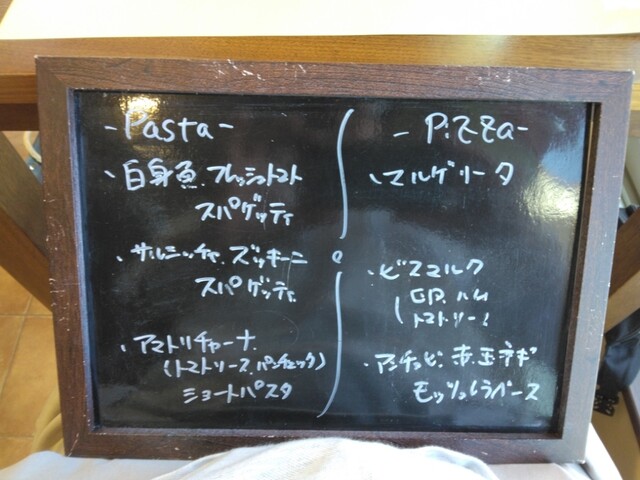 -Pasta-
・白身魚.フレッシュトマト
スパゲッティ
・サルシッチャ.ズッキーニ
スパゲッティ
・アマトリチャーナ.
(トマトソース.パンチェッタ)
ショートパスタ
-Pizza-
・マルゲリータ
・ビスマルク
ハム
トマトソース
・アンチョビ.赤玉ネギ
モッツァレラベース